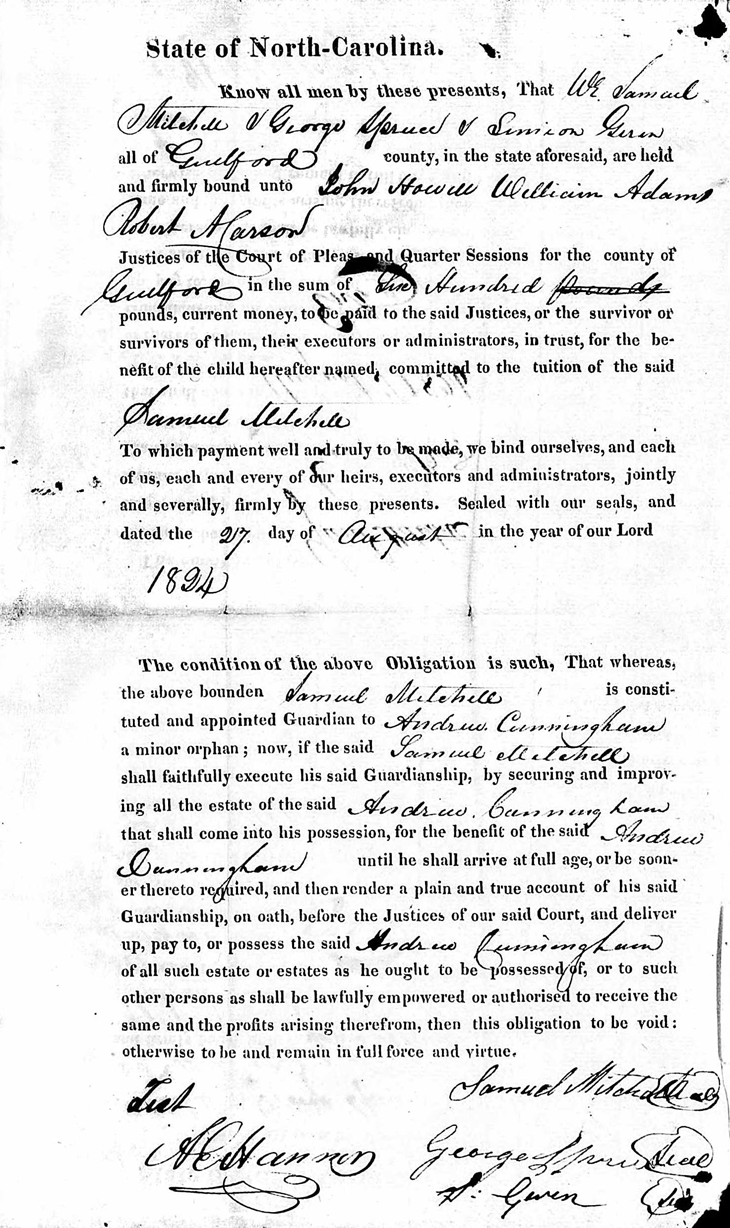 State of North-Carolina.
Know all men by these presents, That We Samuel
Mitchell & George Spruce & Simeon Geren
all of Guilford county, in the state aforesaid, are held
and firmly bound unto John Howell William Adams
Robert Carson
Justices of the Court of Pleas and Quarter Sessions for the county of
Guilford in the sum of Hundred pounds
pounds, current money, to be paid to the said Justices, or the survivor or
survivors of them, their executors or administrators, in trust, for the be-
nefit of the child hereafter named, committed to the tuition of the said
Samuel Mitchell
To which payment well and truly to be made, we bind ourselves, and each
of us, each and every of our heirs, executors and administrators, jointly
and severally, firmly by these presents. Sealed with our seals, and
dated the 27. day of August in the year of our Lord
1824
The condition of the above Obligation is such, That whereas,
the above bounden Samuel Mitchell is consti-
tuted and appointed Guardian to Andrew Cunningham
a minor orphan; now, if the said Samuel Mitchell
shall faithfully execute his said Guardianship, by securing and improv-
ing all the estate of the said Andrew Cunningham
that shall come into his possession, for the benefit of the said Andrew
Cunningham until he shall arrive at full age, or be soon-
er thereto required, and then render a plain and true account of his said
Guardianship, on oath, before the Justices of our said Court, and deliver
up, pay to, or possess the said Andrew Cunningham
of all such estate or estates as he ought to be possessed of, or to such
other persons as shall be lawfully empowered or authorised to receive the
same and the profits arising therefrom, then this obligation to be void:
otherwise to be and remain in full force and virtue.
Samuel Mitchell Seal
Test
Hannon George Spruce Seal
S. Geren Seal